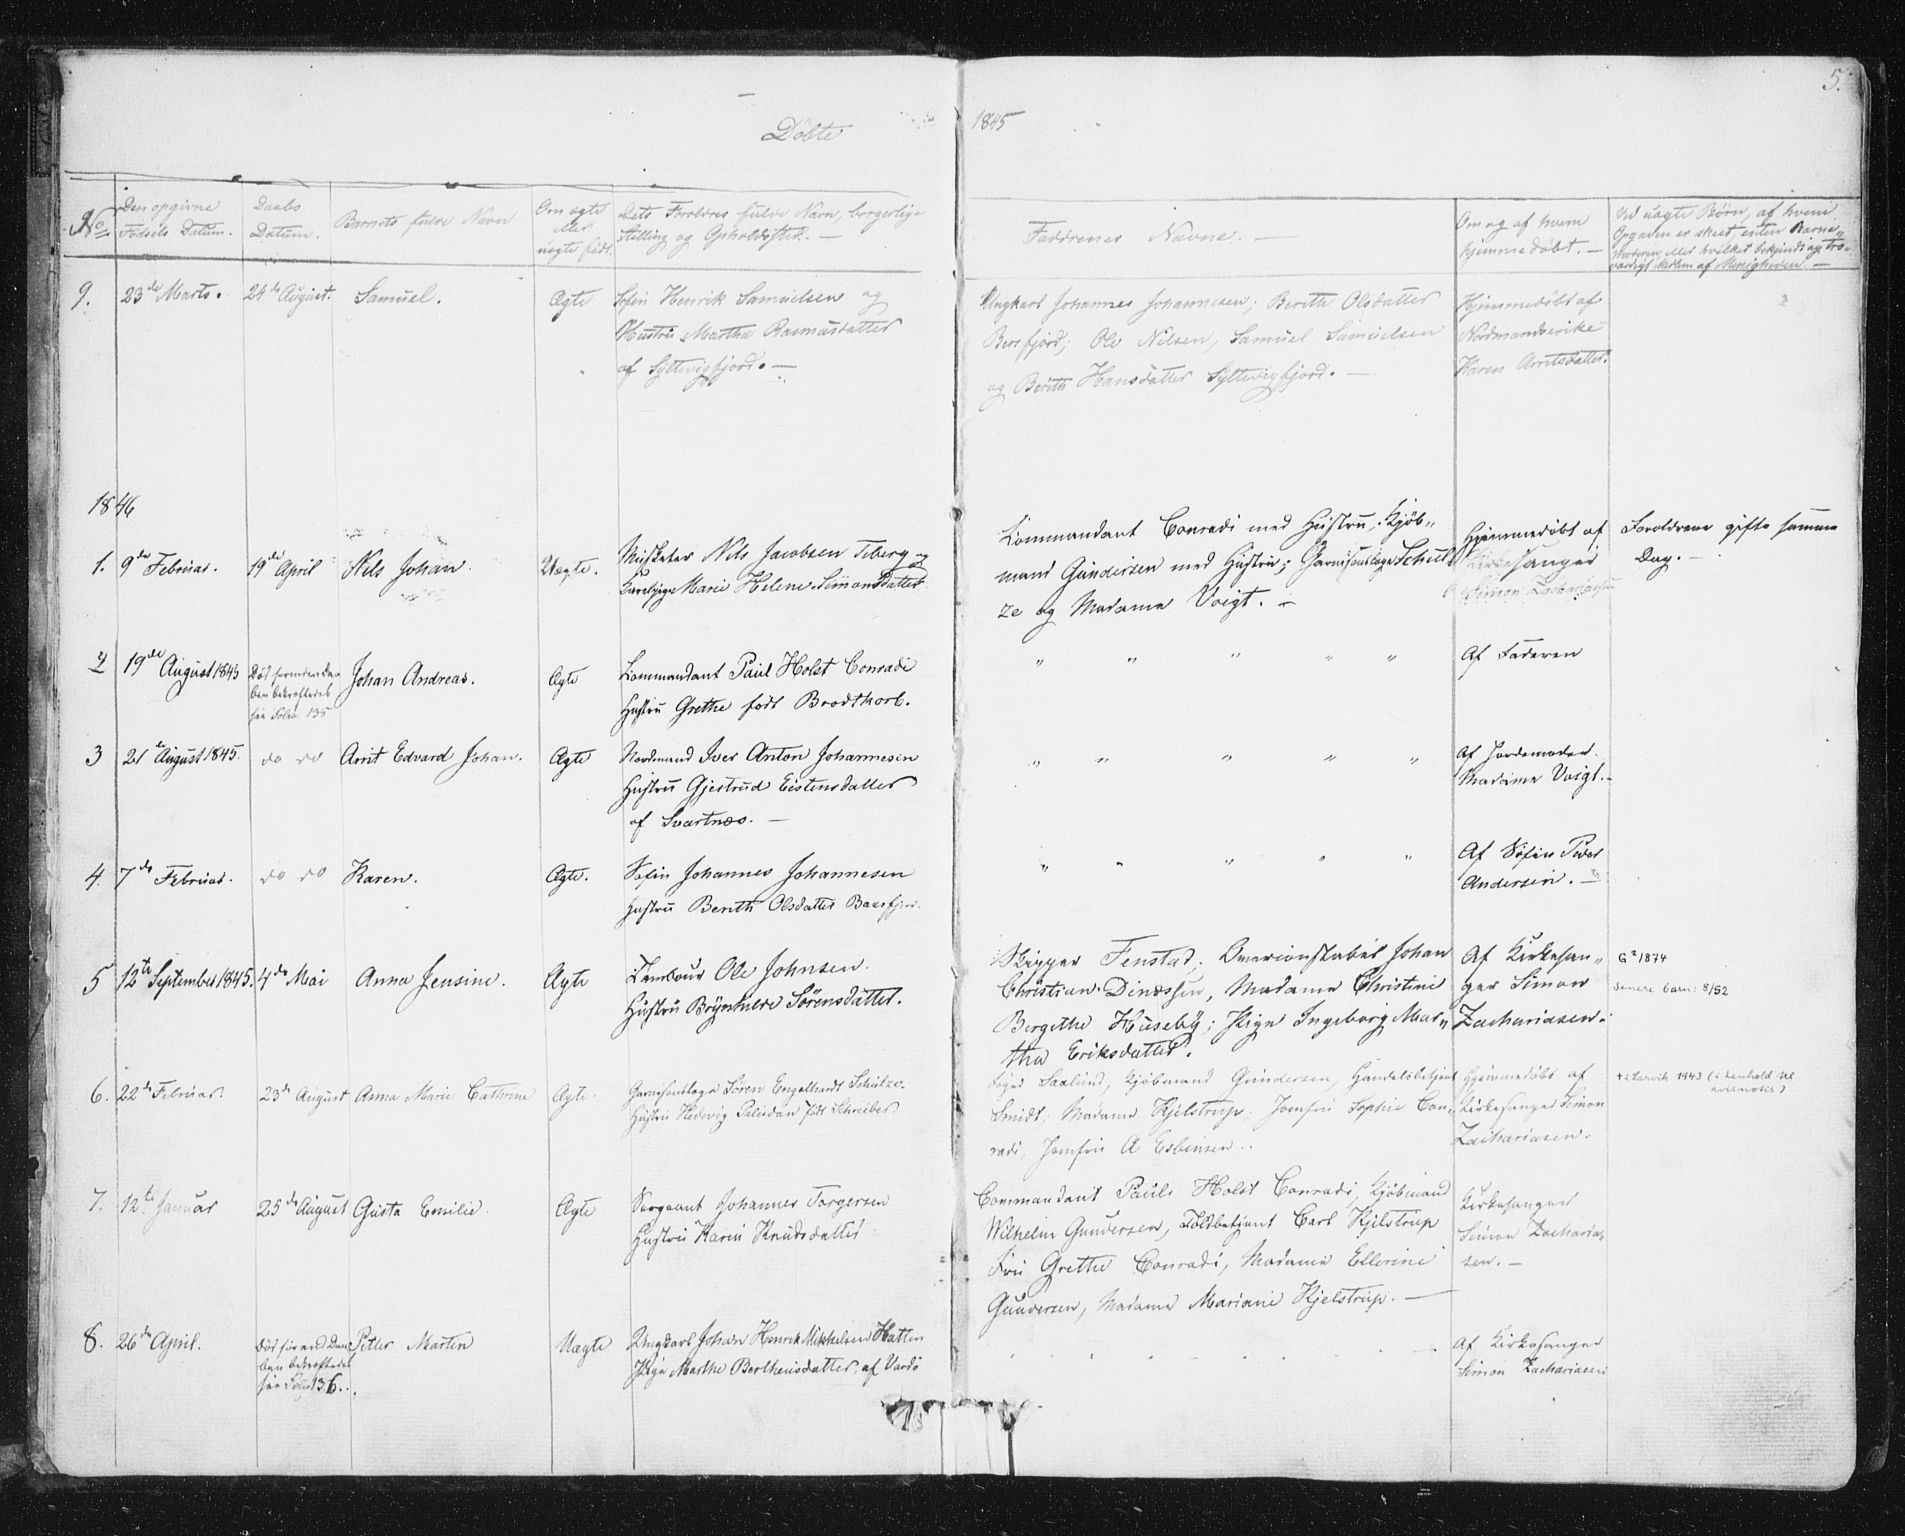 5.
Döbte
1845
No
Den opgivne
Födsels Datum.
Daabs
Datum.
Barnets fulde Navn
Om ægte
eller
uægte født.
Dets Forældres fulde Navn, borgerlige
Stilling og Opholdssted. —
Faddrenes Navne. —
Om og af hvem
hjemmedöbt. —
Ved uægte Börn, af hvem
Opgaven er skeet, enten Barne-
moderen eller hvilket bekjendt og tro-
værdigt Medlem af Menigheden. —
9.
23de Marts.
24de August.
Samuel.
Ægte
Søfin Henrik Samuelsen og
Hustru Martha Rasmusdatter
af Syltevigfjord. —
Ungkarl Johannes Johannesen; Berith Olsdatter
Bersfjord; Ole Nilsen, Samuel Samuelsen
og Berith Hansdatter Syltevigfjord. —
Hjemmedöbt af
Nordmandsenke
Karen Arntsdatter.
1846
1.
9de Februar.
19de April
Nils Johan
Uægte.
Musketer Nils Jacobsen Teberg og
Marie Helene Simonsdatter
Commandant Conradi med Hustru, Kjöb-
mand Gundersen med Hustru; Garnisonslæge Schul
ze og Madame Voigt. —
Hjemmedöbt af
Kirkesanger
Simon Zachariasen
Forældrene gifte samme
Dag. —
2
19de August 1845
Död forinden Daa
ben bekræftedes
see Folio 135
Johan Andreas.
Ægte
Commandant Paul Holst Conradi
Hustru Grethe födt Brodtkorb.
" " " " "
Af Faderen
3
21de August 1845.
do do
Arnt Edvard Johan.
Ægte
Nordmand Iver Anton Johannesen
Hustru Gjertrud Eistensdatter
af Svartnæs. —
" " " " "
Af Jordemoder
Madame Voigt. —
4.
7de Februar.
do do
Karen.
Ægte.
Søfin Johannes Johannesen
Hustru Berith Olsdatter Baasfjord.
" " " " "
Af Söfin Peder
Andersen. —
5
12te September 1845.
4de Mai
Anna Jensine.
Ægte
Tambour Ole Johnsen.
Hustru Brynhilde Sörensdatter.
Skipper Fenstad, Overconstabel Johan
Christian Dinessen, Madame Christine
Bergethe Huseby; Pige Ingeborg Mar-
tha Eriksdatter.
Af Kirkesan-
ger Simon
Zachariasen.
G² 1874
Senere barn: 8/52
6.
22de Februar.
23de August
Anna Marie Cathrine
Ægte.
Garnisonslæge Sören Engelhardt Schulze.
Hustru Hedevig Paludan födt Schreiber.
Foged Saxlund, Kjöbmand Gundersen, Handelsbetjent
Smidt, Madame Kjelstrup, Jomfru Sophie Con-
radi, Jomfru A Esbensen.
Hjemmedöbt af
Kirkesanger Simon
Zachariasen.
† i Larvik 1943 (i henhold til
avisnotis)
7.
12te Januar
25de August
Gusta Emilie.
Ægte
Sergeant Johannes Torgersen
Hustru Karen Knudsdatter
Commandant Paul Holst Conradi, Kjöbmand
Wilhelm Gundersen, Toldbetjent Carl Kjelstrup
Fru Grethe Conradi, Madame Ellerine
Gundersen, Madame Mariane Kjelstrup. —
Kirkesanger
Simon Zacharia-
sen. —
8.
26de April.
Död förend Daa
ben bekræftedes
see Folio 136.
Petter Martin
Uægte
Ungkarl Johan Henrik Mikkelsen Hatten
Pige Marthe Berthensdatter, af Vardö
" " " " "
Af Kirkesanger
Simon Zachariasen